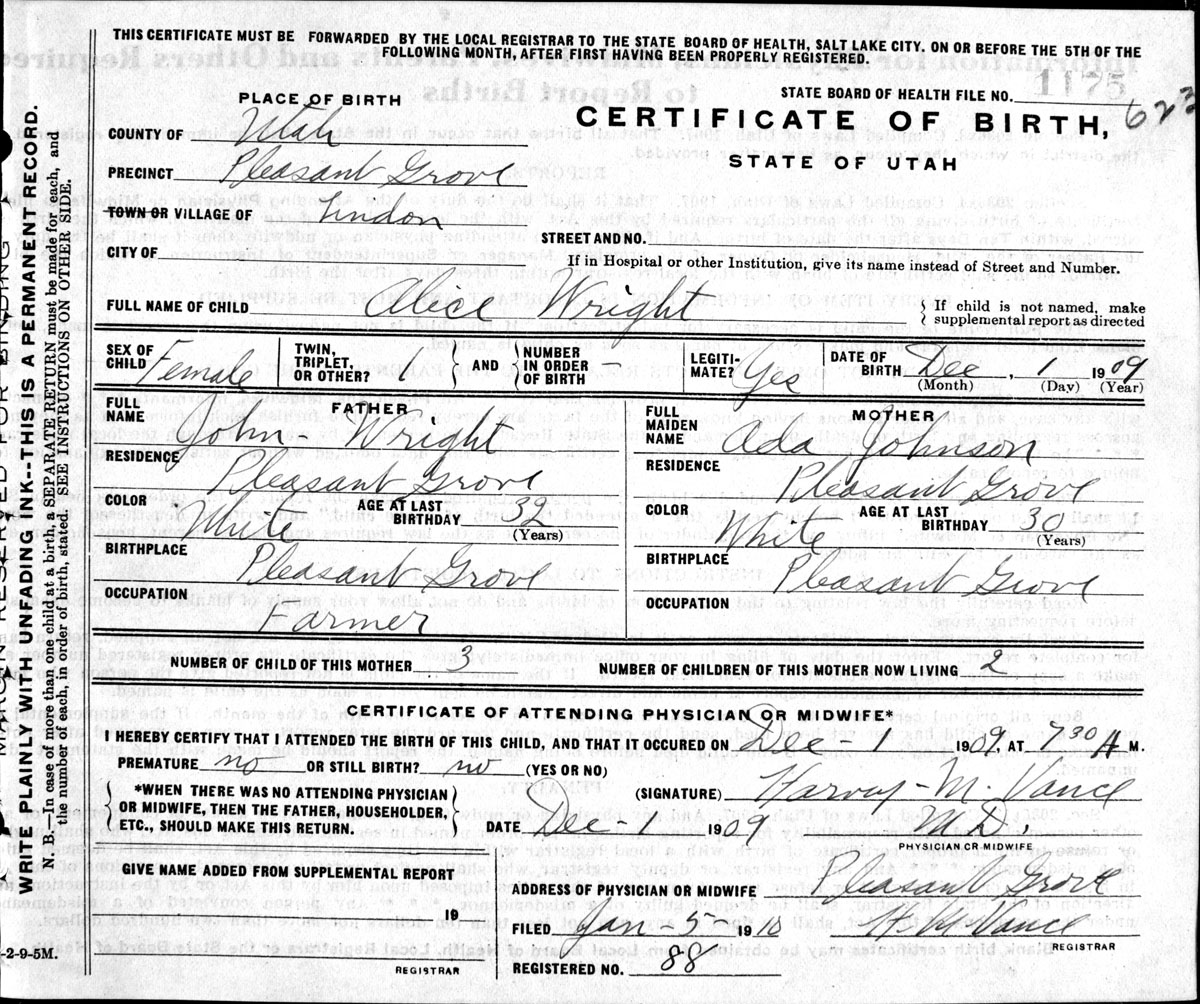 THIS CERTIFICATE MUST BE FORWARDED BY THE LOCAL REGISTRAR TO THE STATE BOARD OF HEALTH, SALT LAKE CITY, ON OR BEFORE THE 5TH OF THE
FOLLOWING MONTH, AFTER FIRST HAVING BEEN PROPERLY REGISTERED.
1175
PLACE OF BIRTH
STATE BOARD OF HEALTH FILE NO.
623
COUNTY OF Utah
CERTIFICATE OF BIRTH,
STATE OF UTAH
PRECINCT Pleasant Grove
TOWN OR VILLAGE OF Lindon
STREET AND NO.
CITY OF
If in Hospital or other Institution, give its name instead of Street and Number.
FULL NAME OF CHILD Alice Wright
If child is not named, make
supplemental report as directed
SEX OF CHILD Female
TWIN, TRIPLET, OR OTHER? 1
AND
NUMBER IN ORDER OF BIRTH -
LEGITI-MATE? Yes
DATE OF BIRTH Dec, 1 1909
(Month) (Day) (Year)
FATHER
NAME John Wright
RESIDENCE Pleasant Grove
COLOR White AGE AT LAST BIRTHDAY 32
(Years)
BIRTHPLACE Pleasant Grove
OCCUPATION Farmer
MOTHER
FULL MAIDEN NAME Ada Johnson
RESIDENCE Pleasant Grove
COLOR White AGE AT LAST BIRTHDAY 30
(Years)
BIRTHPLACE Pleasant Grove
OCCUPATION
NUMBER OF CHILD OF THIS MOTHER 3 NUMBER OF CHILDREN OF THIS MOTHER NOW LIVING 2
CERTIFICATE OF ATTENDING PHYSICIAN OR MIDWIFE*
I HEREBY CERTIFY THAT I ATTENDED BIRTH OF THIS CHILD, AND THAT IT OCCURED ON Dec - 1 1909, AT 7 30 A M.
PREMATURE no OR STILL BIRTH? no (YES OR NO)
*WHEN THERE WAS NO ATTENDING PHYSICIAN
OR MIDWIFE, THEN THE FATHER, HOUSEHOLDER,
ETC., SHOULD MAKE THIS RETURN.
(SIGNATURE) Harvay M. Vance
DATE Dec 1909 M.D.
PHYSICIAN OR MIDWIFE
GIVE NAME ADDED FROM SUPPLEMENTAL REPORT
19
REGISTRAR
ADDRESS OF PHYSICIAN OR MIDWIFE Pleasant Grove
FILED Jan - 5 - 1910 H M Vance
REGISTRAR
REGISTERED NO. 88
-2-9-5M.
MARGIN RESERVED FOR BINDING
WRITE PLAINLY WITH UNFADING INK--THIS IS A PERMANENT RECORD.
N. B.—In case of more than one child at a birth, a SEPARATE RETURN must be made for each, and
the number of each, in order of birth, stated. SEE INSTRUCTIONS ON OTHER SIDE.